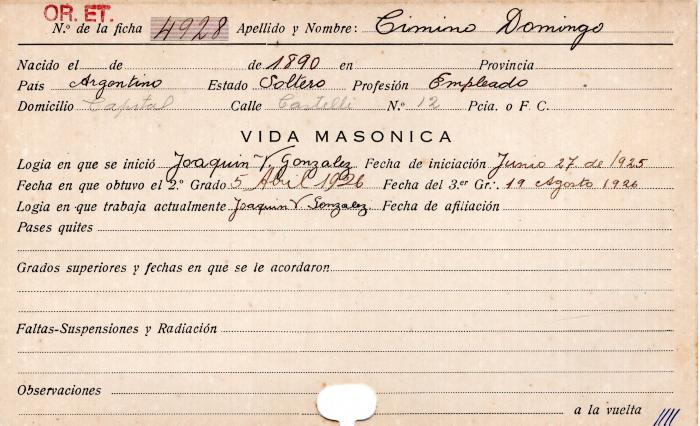 OR. ET.
N.º de la ficha 4928 Apellido y Nombre: Cimino Domingo
Nacido el de de 1890 en Provincia
País Argentino Estado Soltero Profesión Empleado
Domicilio Capital Calle Castelli N.º 12 Pcia. o F. C.
VIDA MASONICA
Logia en que se inició Joaquin V. Gonzalez Fecha de iniciación Junio 27 de 1925
Fecha en que obtuvo el 2.º Grado 5 Abril 1926 Fecha del 3.er Gr.: 19 Agosto 1926
Logia en que trabaja actualmente Joaquin V Gonzalez Fecha de afiliación
Pases quites
Grados superiores y fechas en que se le acordaron
Faltas-Suspensiones y Radiación
Observaciones
a la vuelta